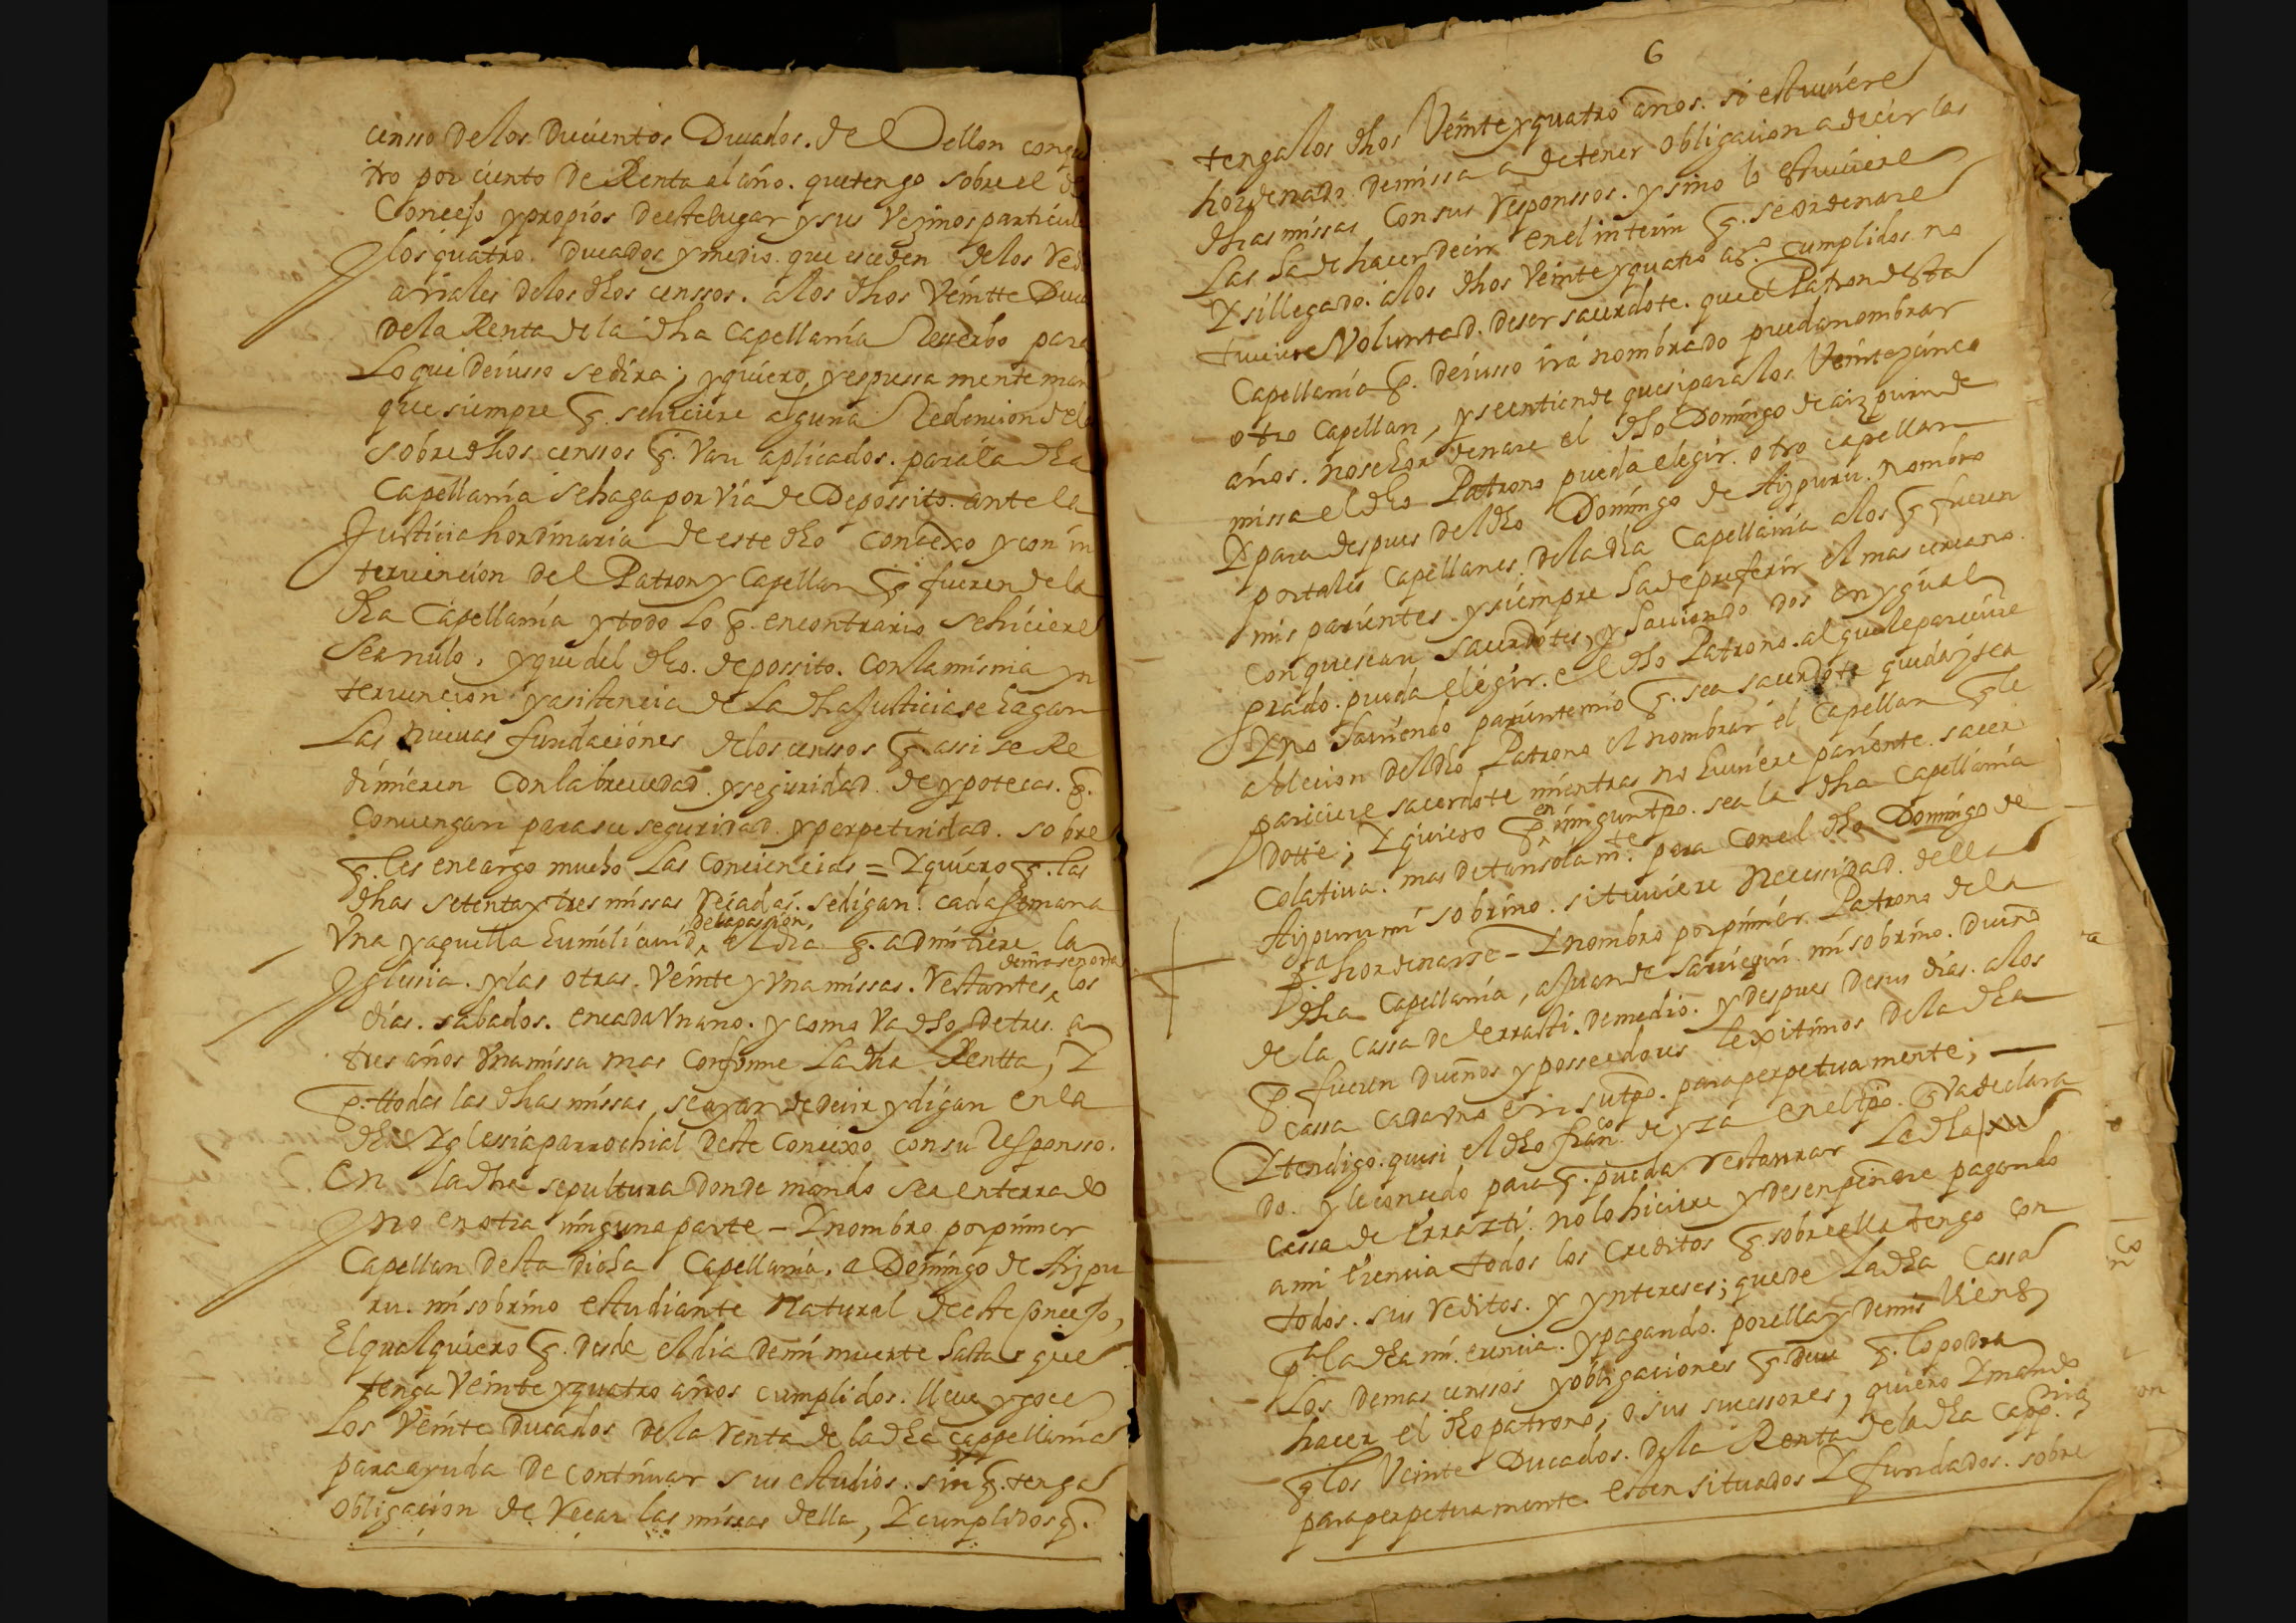 censso de los ducientos Ducados. de Vellon con qu
tro por ciento de Renta al año. que tengo sobre el
Concejo y propios deste lugar y sus Vezinos particul
los quatro. Ducados y medio. que eceden de los
anales de los dhos censsos. a los dhos Veintte Duca
de la Renta de la dha Capellania Reserbo para
Lo que deiusso se dira; y quiero, y espressa mente man
que siempre q. se hiciere alguna Redencion de
sobredhos censsos q. Van aplicados. para la dha
Capellania se haga por Via de Depossito. ante la
Justicia hordinaria de este dho concexo y con in
teruencion del Patron y Capellan q fueren de la
dha Capellania y todo Lo q. en contrario se hiciere
sea nulo, y que del dho. depossito. Con la misma yn
teruencion y asistencia de La dha Justicia se hagan
Las nueuas fundaciones de los censsos q. assi se Re
dimieren Con la breuedad. y seguridad. de ypotecas. q.
Conuengan para su seguridad. y perpetuidad. sobre
q. les encargo mucho Las Conciencias = Y quiero q. las
dhas setenta y tres missas reçadas. se digan. cada semana
Vna y aquella
de la passion,
el dia q. admitiere la
demas señora
Iglesia. y las otras. Veinte y Vna missas. restantes los
dias. sabados. en cada Vn año. y como Va dho de tres. a
tres años Vna missa mas Conforme La dha Rentta; Y
q. ttodas las dhas missas, se ayan de decir y digan en la
dha Yglessia parrochial deste Concexo con su responsso.
en la dha sepultura donde mando ser enterrado
y no en otra ninguna parte - Y nombro por primer
Capellan desta dicha Capellania, a Domingo de Aizpu
ru. mi sobrino estudiante natural de este Concejo,
El qual quiero q. desde el dia de mi muerte hasta que
tenga Veinte y quatro años cumplidos. lleue y goce
Los Veinte Ducados de la renta de la dha cappellania
para ayuda de continuar sus estudios. sin q. tenga
obligacion de reçar las missas della, Y cumplidos q.
6
tenga los dhos Veinte y quatro años. si estuuiere
hordenado de missa a de tener obligacion a decir las
dhas missas Con sus responssos. y si no lo estuuiere
Las ha de hacer decir en el interin q. se ordenare
Y si llegado. a los dhos Veinte y quatro as. cumplidos no
tuuiere Voluntad. de ser sacerdote. que el Patron desta
Capellania q. deiusso ira nombrado pueda nombrar
otro Capellan, y se entiende que si para los Veinte y cinco
años. no se hordenare el dho Domingo de aizpuru de
missa el dho Patrono pueda elegir. otro capellan
Y para despues del dho Domingo de Aizpuru. nombro
por tales Capellanes. de la dha Capellania a los q fueren
mis parientes. y siempre ha de preferir el mas cercano
Con que sean Sacerdotes, y hauiendo dos en ygual
grado. pueda elegir. el dho Patrono. al que le pareciere
Y no hauiendo pariente mio q. sea sacerdote queda y sea
a elecion del dho Patrono el nombrar el Capellan q le
pareciere sacerdote mientras no huuiere pariente. sacer
dotte; Y quiero q.
en
ningun tpo. sea la dha Capellania
Colatiua. mas de tan sola mte. pera Con el dho Domingo de
Aizpuru mi sobrino. si tuuiere necessidad. della
pa hordenarse - Y nombro por primer Patrono de la
dha Capellania, a Juan de mi sobrino. dueño
de la Cassa de derrasti. de medio. y despues de sus dias. a los
q. fueren dueños y posseedores lexitimos de la dha
cassa cada vno en su tpo. para perpetuamente; —
Y ten digo. que si el dho franco. de yza en el tpo. q Va declara
do. y le concedo para q. pueda restaurar La dha
cassa de Errazti. no lo hiciere y desempeñare pagando
a mi erencia todos los Creditos q sobre ella tengo con
todos. sus reditos. y yntereses; quede La dha Cassa
pa la dha mi erencia. y pagando. por ella y de mis bienes
Los demas censsos y obligaciones q deue q. lo podra
hacer el dho patrono; o sus sucessores, quiero Y mando
q los Veinte Ducados. de la Renta de la dha Capp.nia
para perpetuamente. esten situados Y fundados. sobre